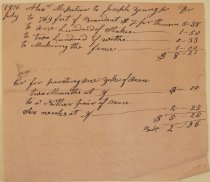 1816 Alexr McFarlane to Joseph Young for Dr
July to 769 feet of Boards at $7 for thousan 5-38
to one hundred of Stakes 1-50
to two hundred of withs 0-33
to Making the fence 1-00
$8 21
Cr for pasturing one Yoke of Oxen
two Months at $ $-00
to a Nother pair of Oxen
Six weeks at $ 2-25
$5-25
2-96